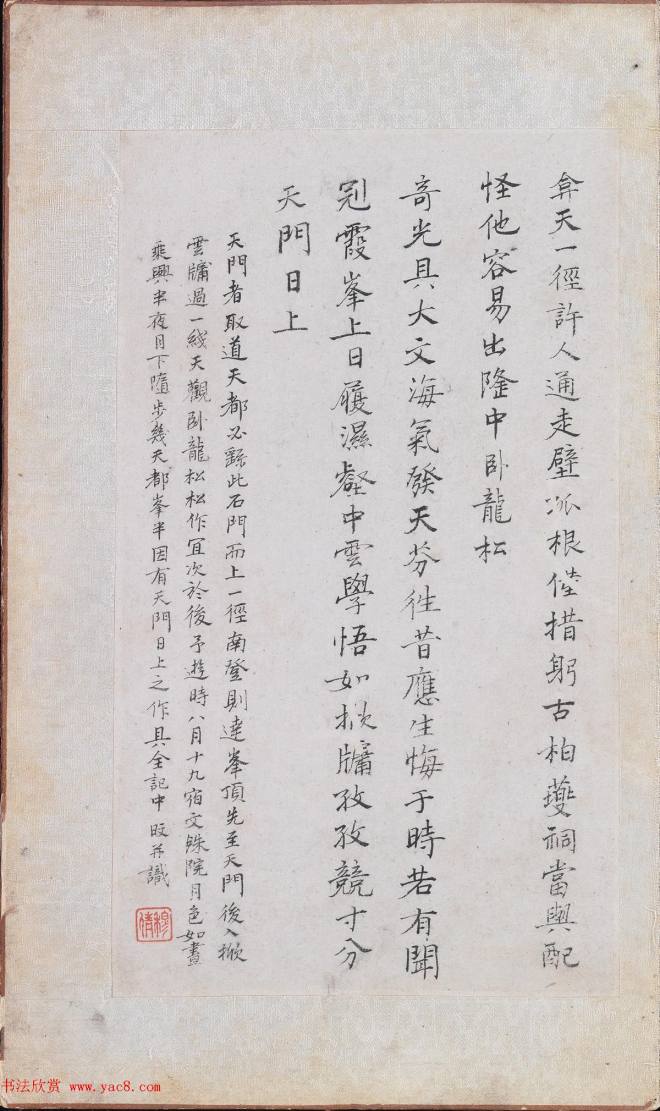 弇天一徑許人通走壁冰根倦措躬古柏夔祠當與配
怪他容易出隆中臥龍松
奇光具大文海氣發天芬往昔應生悔于時若有聞
冠霞峯上日履濕壑中雲學悟如掀牗孜孜競寸分
天門日上
天門者取道天都必繇此石門而上一徑南登則達峯頂先至天門後入掀
雲牗過一綫天觀臥龍松松作宜次於後予遊時八月十九宿文殊院月色如晝
乘興半夜月下隨步幾天都峯半因有天門日上之作具全記中旼并識
穆倩
书法欣赏 www.yac8.com